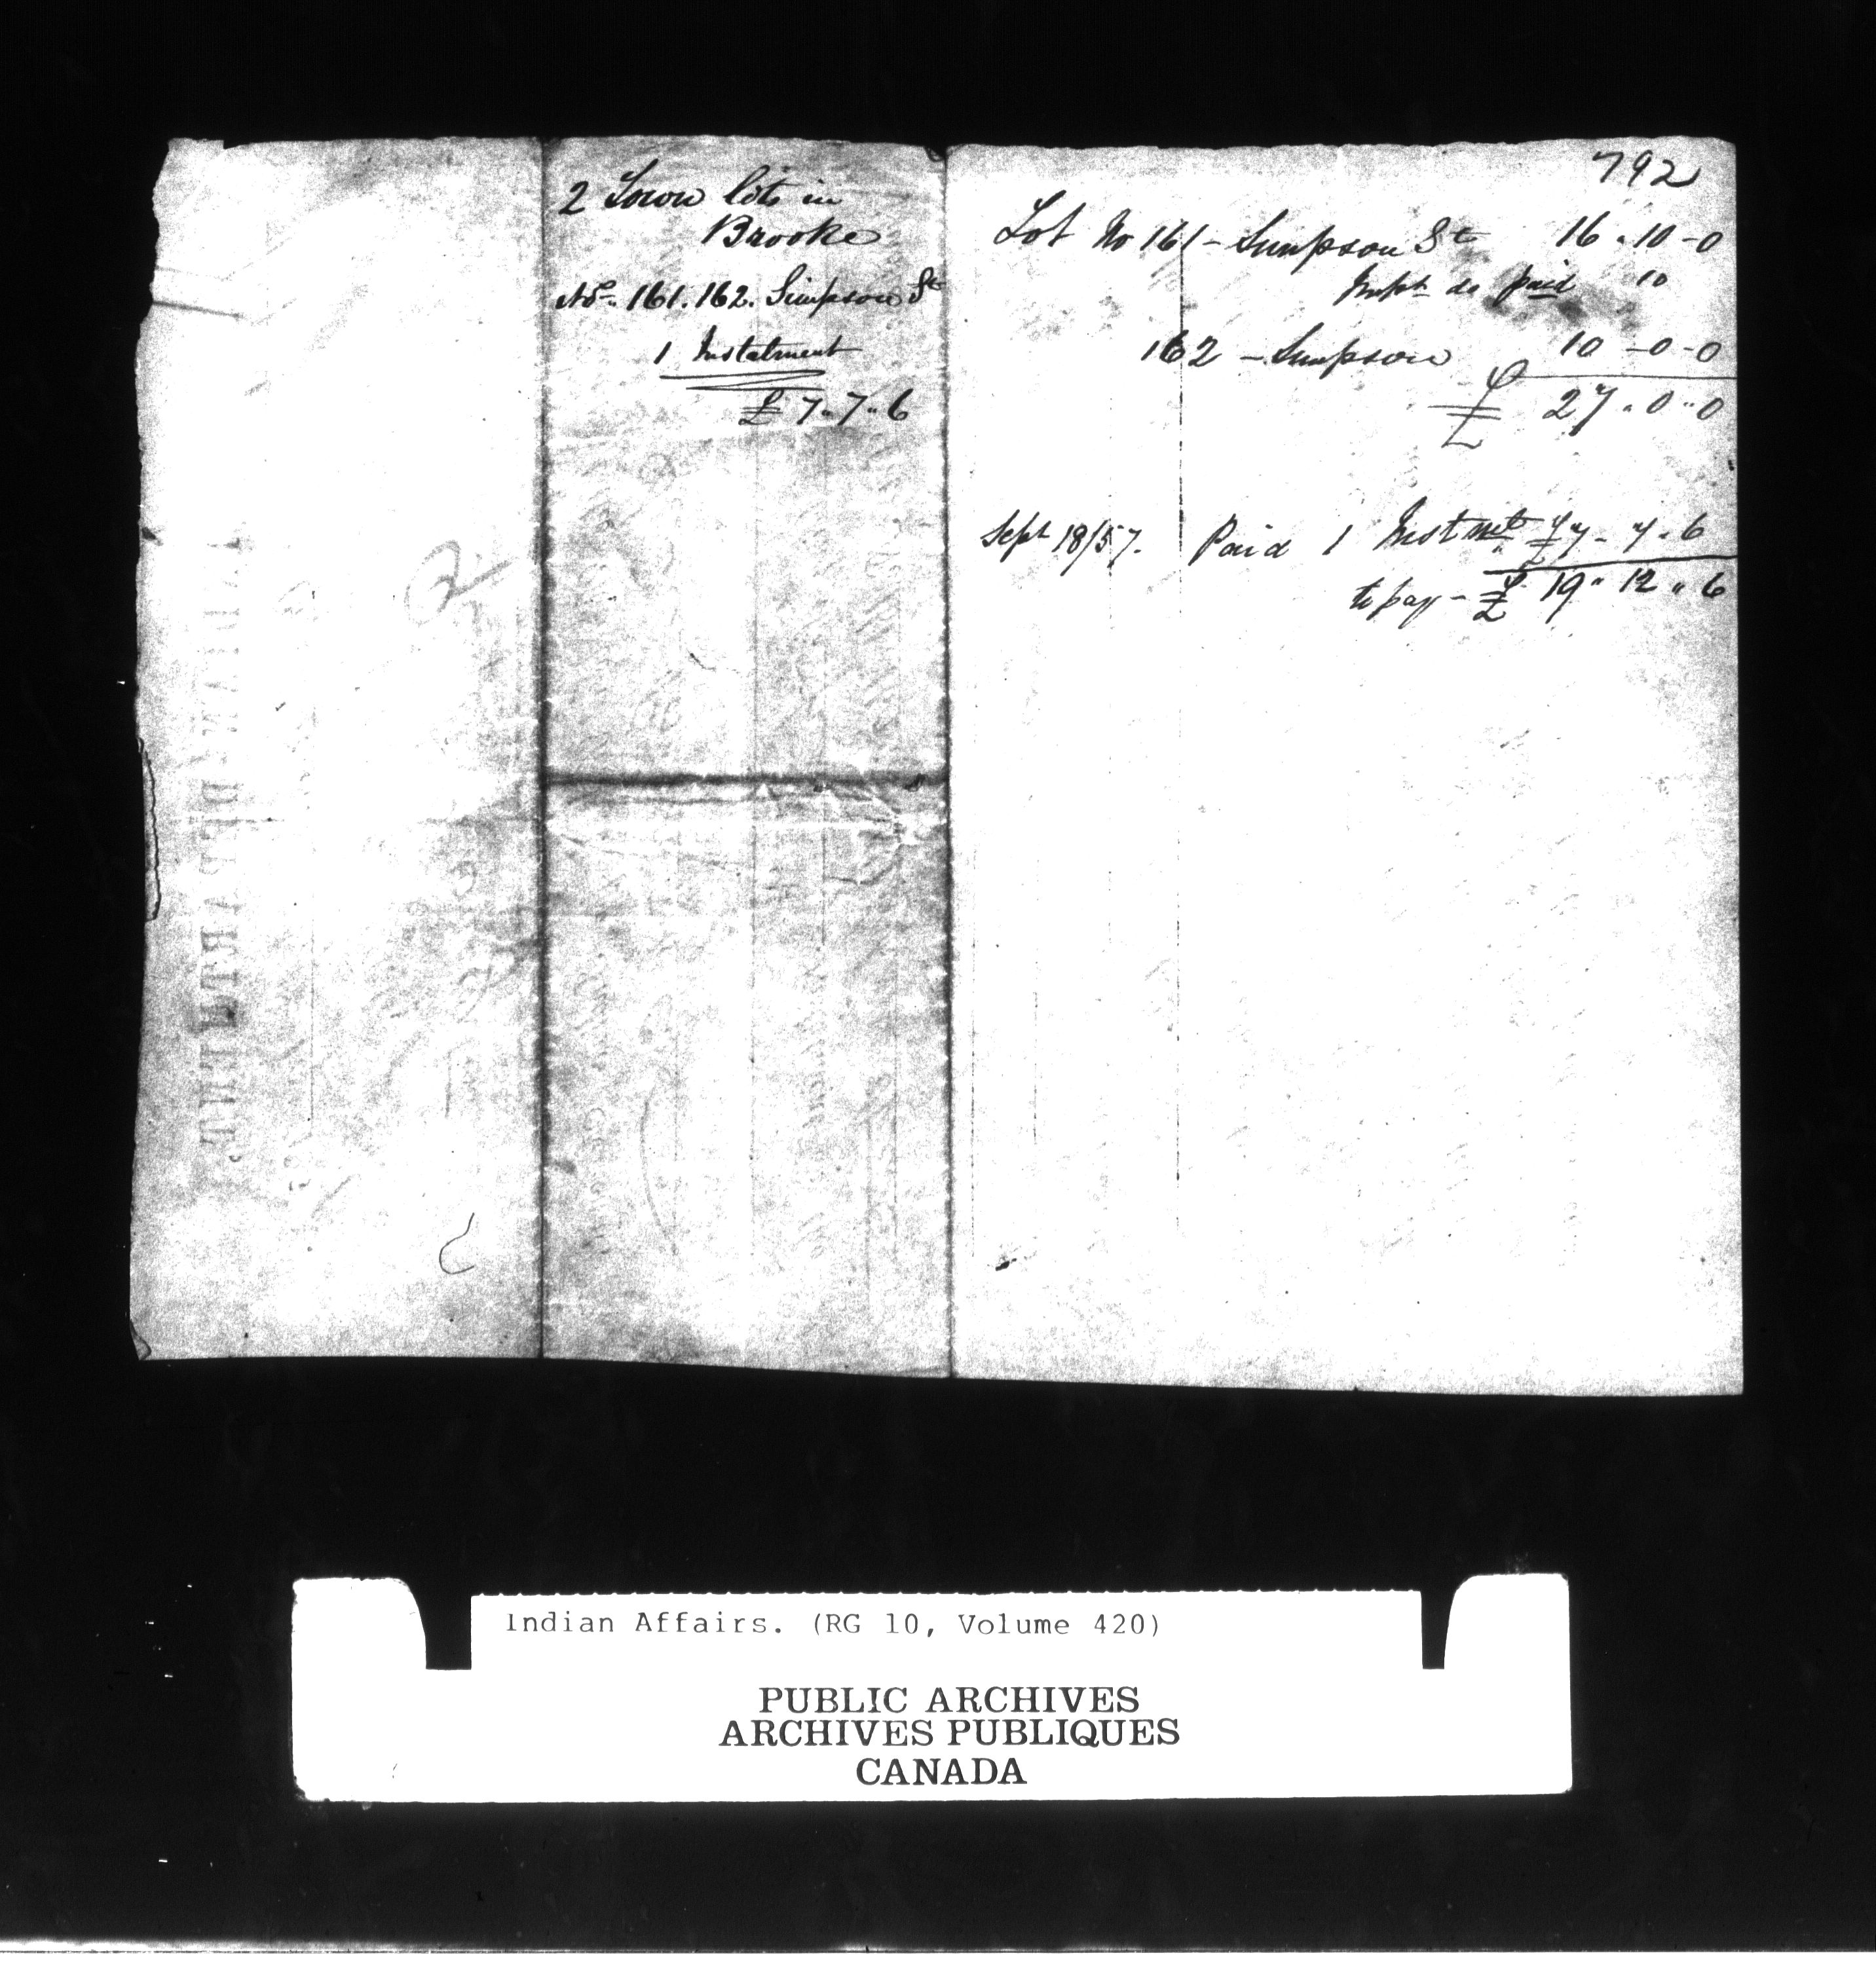 2 Town lots in
Brooke
No. 161. 162. Simpson St
1 Instalment
£ 7 " 7 " 6
792
Lot No 161 - Simpson St 16 . 10 - 0
do paid 10
162 - Simpson 10 - 0 - 0
£ 27 " 0 " 0
Sept 18/57. Paid 1 Instmet £7 - 7 . 6
to pay - £ 19 " 12 " 6
INDIAN DEPARTMENT.
Indian Affairs. (RG 10, Volume 420)
PUBLIC ARCHIVES
ARCHIVES PUBLIQUES
CANADA